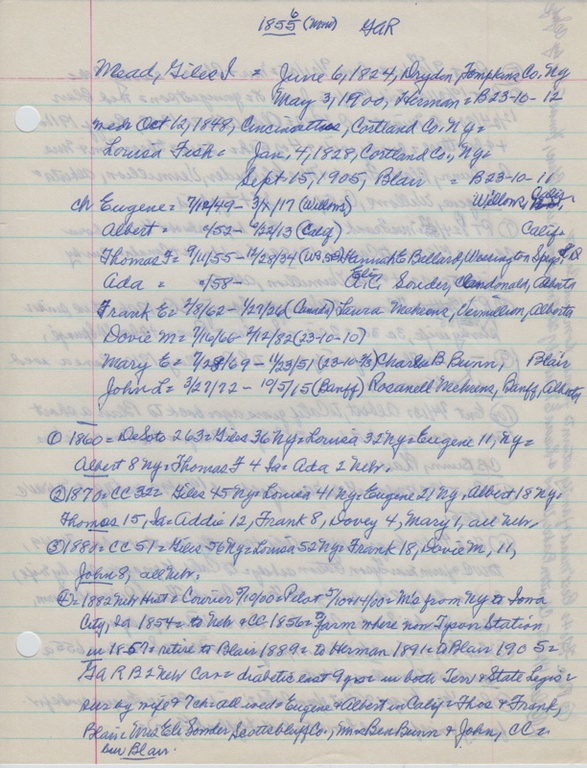 1855 6 (Mrw) GAR
Mead, Giles I = June 6, 1824, Dryden, Tompkins Co, Ny
May 3, 1900, Herman = B23-10-12
med= Oct 12, 1848, Cincinattus, Cortland Co, Ny=
Louisa Fish = Jan. 4, 1828, Cortland Co., Ny=
Sept. 15, 1905, Blair = B23-10-11
ch Eugene = 7/12/49 - 3/x/17 (Willows) Willows, Calif
Albert = 0/52 - 4/22/13 (Calif) Calif.
Thomas F = 9/11/55 - 12/28/34 Hannah E Ballard, Wessington Spgs, S.D
Ada = 0/58 - Eli Souder, Alberta
Frank E = 2/8/62 - 1/27/26 (Canada) Laura Mehrens, Vermillion, Alberta
Dovie M = 7/16/66 - 2/12/82 (23-10-10)
Mary E = 7/28/69 - 1/23/51 (23-10-) Charles B Bunn, Blair
John L = 3/27/72 - 10/5/15 (Banff) Rocanell Mehrens, Banff, Alberta
① 1860 = DeSoto 263 = Giles 36 Ny = Louisa 32 Ny = Eugene 11, Ny =
Albert 8 Ny = Thomas F 4 Ia = Ada 2 Nebr.
② 1870 = CC 32 = Giles 45 Ny = Louisa 41 Ny = Eugene 21 Ny, Albert 18 Ny =
Thomas 15, Ia = Addie 12, Frank 8, Dovey 4, Mary 1, all Nebr.
③ 1880 = CC 51 = Giles 56 Ny = Louisa 52 Ny = Frank 18, Dovie M, 11,
John 8, all Nebr.
④ = 1882 Neb Hist = Courier 5/19/00 = Pilot 5/10 + 4/00 = Md from Ny to Iowa
City, Ia 1854 = to Neb & CC 1856 = farm where now Tyson Station
in 1857 = retire to Blair 1889 = to Herman 1891 = Blair 1905 =
GaR B 2 Neb Cav = diabetic last 9 yrs = in both Terr & State Legis =
sur by wife & 7 ch = all wed = Eugene & Albert in Calif = Thos & Frank,
Blair = Mrs Eli Souder, Scottsbluff Co., Mrs Ben Bunn & John, CC =
bur Blair.